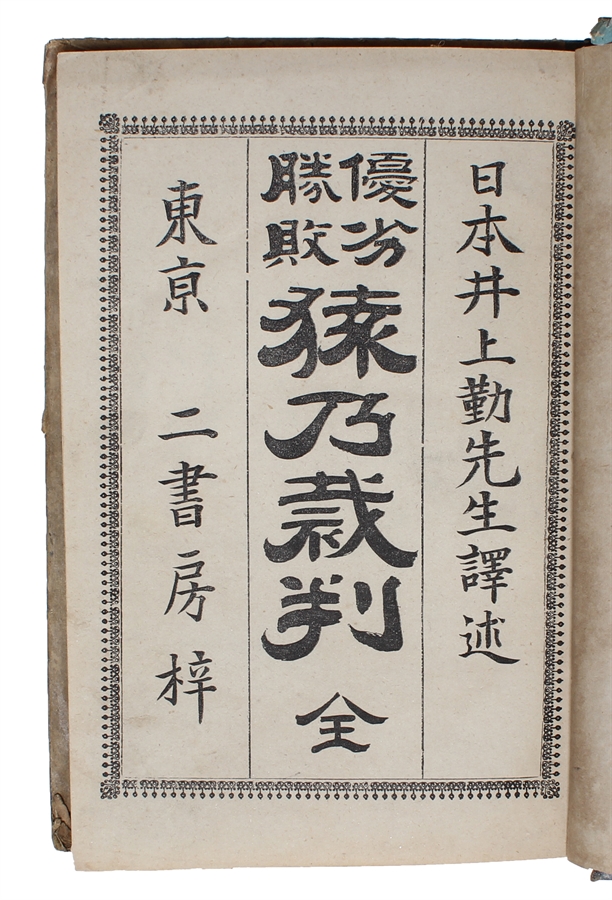 日本井上勤先生譯述
優劣
勝敗
猿乃裁判 全
東亰 二書房梓